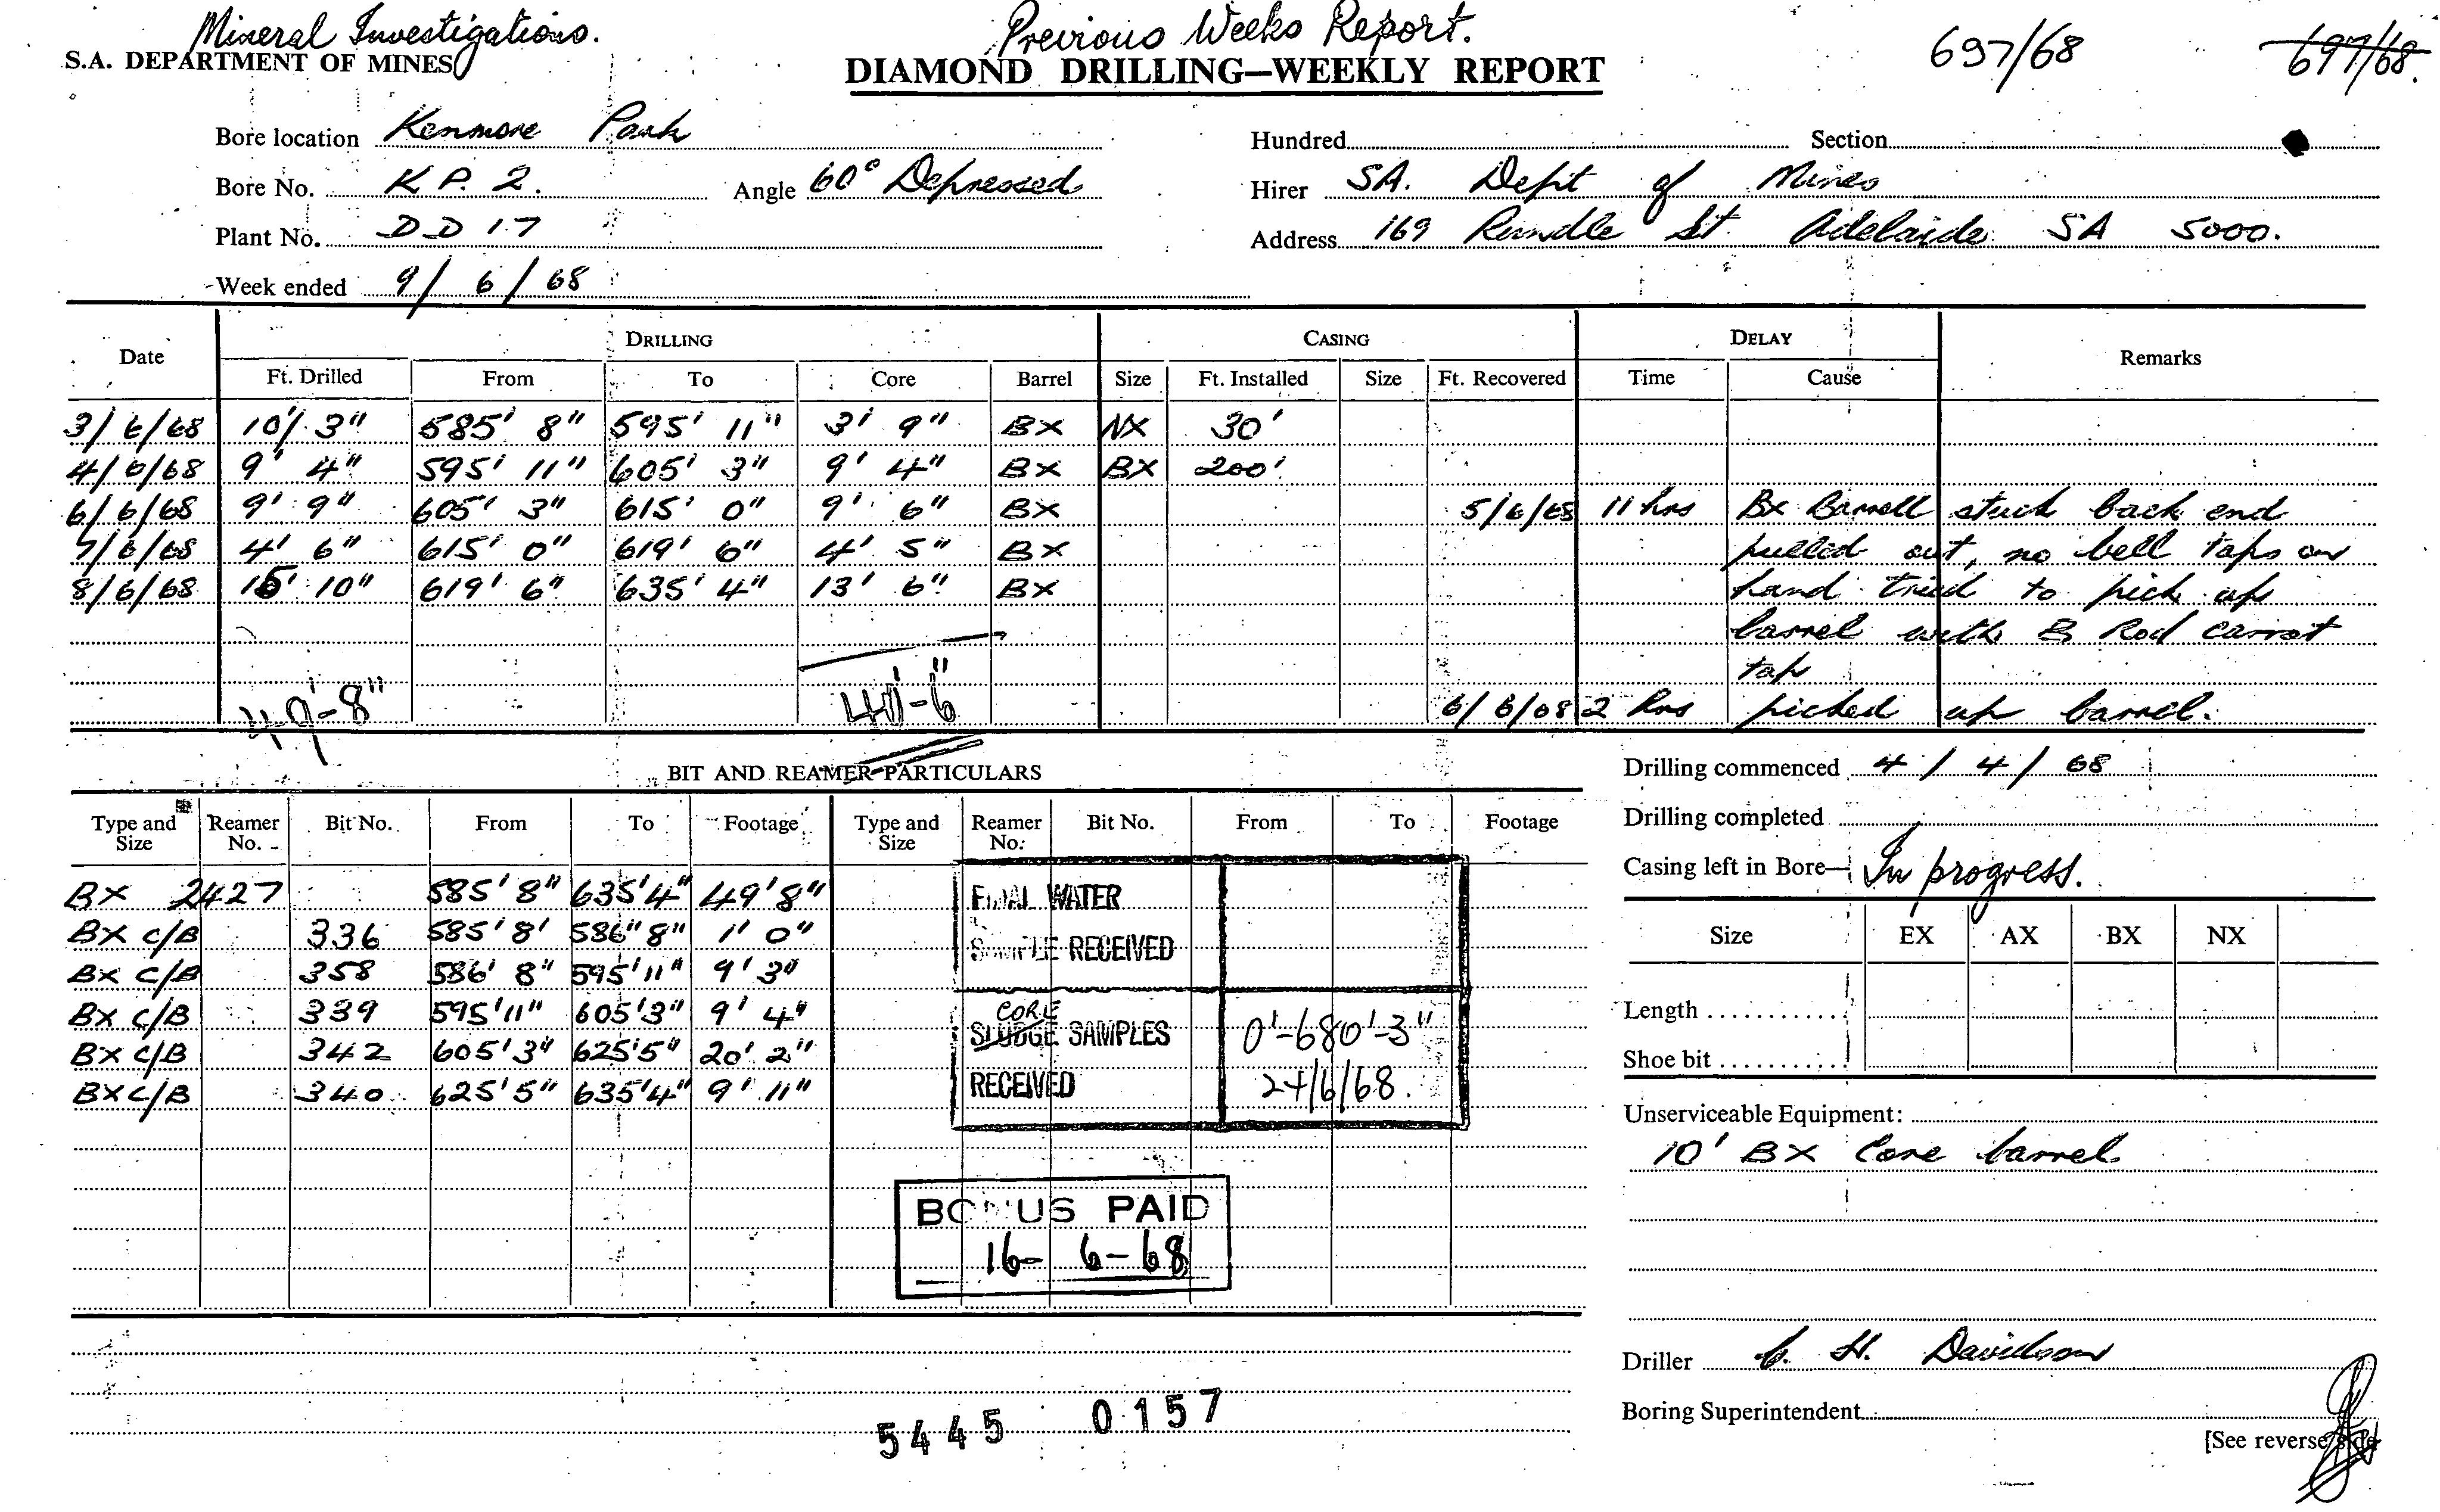 Mineral Investigations. Previous Weeks Report. 697/68 697/68.
S.A. DEPARTMENT OF MINES DIAMOND DRILLING—WEEKLY REPORT
Bore location Kenmore Park Hundred Section
Bore No. K P. 2. Angle 60° Depressed Hirer SA. Dept of Mines
Plant No. DD 17 Address 169 Rundle St Adelaide SA 5000.
Week ended 9/6/68
Date DRILLING CASING DELAY Remarks
Ft. Drilled From To Core Barrel Size Ft. Installed Size Ft. Recovered Time Cause
3/6/68 10' 3" 585' 8" 595' 11" 3' 9" BX NX 30'
4/6/68 9' 4" 595' 11" 605' 3" 9' 4" BX BX 200'
6/6/68 9' 9" 605' 3" 615' 0" 9' 6" BX 5/6/68 11 hrs Bx Barrell stuck back end
7/6/68 4' 6" 615' 0" 619' 6" 4' 5" BX pulled out, no bell taps on
8/6/68 15' 10" 619' 6" 635' 4" 13' 6" BX hand tried to pick up
barrel with B Rod carrot
tap
49'-8" 40'-6" 6/6/68 2 hrs picked up barrel.
BIT AND REAMER PARTICULARS Drilling commenced 4/4/68
Type and Size Reamer No. Bit No. From To Footage Type and Size Reamer No. Bit No. From To Footage Drilling completed
Casing left in Bore— In progress.
BX 2427 585' 8" 635' 4" 49' 8" FINAL WATER
BX C/B 336 585' 8' 586" 8" 1' 0" SAMPLE RECEIVED Size EX AX BX NX
BX C/B 358 586' 8" 595' 11" 9' 3"
BX C/B 339 595' 11" 605' 3" 9' 4" CORE SLUDGE SAMPLES 0'-680'-3" Length
BX C/B 342 605' 3" 625' 5" 20' 2" Shoe bit
BX C/B 340 625' 5" 635' 4" 9" 11" RECEIVED 24/6/68.
Unserviceable Equipment:
10' BX Core barrel
BONUS PAID
16-6-68
Driller H. Davidson
Boring Superintendent
5445 0157
[See reverse side